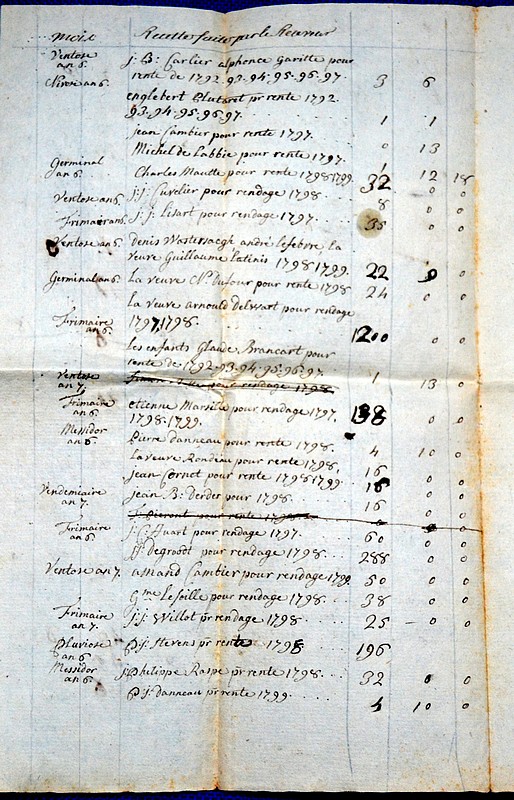 mois Recette faite par le Receveur
Ventose j: B: Carlier alphonce Garitte pour
an 6. rente de 1792.93.94.95.96.97. 3 6
Nivose an 6. englebert Plutaret pr rente 1792.
93.94.95.96.97. 1 1
jean Cambier pour rente 1797. 0 13
Michel de Labbie pour rente 1797. 1
Germinal Charles Mautte pour rente 1798 1799. 12 18
an 6. 32 0 0
Ventose an 6. j: j: Cuvelier pour rendage 1798. 8 0 0
Frimaire an 6. j: j: Lisart pour rendage 1797. 36 0 0
Ventose an 6. Denis Wastersaegh andré Lefebvre la
Veuve Guillaume Latinis 1798 1799. 22 0 0
Germinal an 6. La veuve Cl. Dufour pour rente 1798 24 0 0
La veuve arnould Delwart pour rendage
Frimaire 1797, 1798. 1200 0 0
an 6.
Les enfants Glaude Brancart pour
rente de 1792.93.94.95.96.97. 1 13 0
Ventose pour rendage 1798
an 7.
Frimaire etienne Marsille pour rendage 1797. 138 0 0
an 6. 1798.1799.
Messidor Pierre Danneau pour rente 1798. 4 10 0
an 6. La veuve Rondeau pour rente 1798. 16 0 0
jean Cornet pour rente 1798 1799 18 0 0
Vendemiaire jean B: Derder pour 1798. 16 0 0
an 7. j: Pieront pour rente 1798
Frimaire j: G huart pour rendage 1797. 60 0 0
an 6.
ff degroodt pour rendage 1798. 288 0 0
Ventose an 7. amand Cambier pour rendage 1799. 50 0 0
Gme Lefoille pour rendage 1798. 38 0 0
Frimaire j: j: Willot pr rendage 1798. 25 0 0
an 7.
Pluviose P: j: Stevens pr rente 1798 196
an 6
Messidor j: philippe Raspe pr rente 1798. 32 0 0
an 6.
P: j: Danneau pr rente 1799. 4 10 0